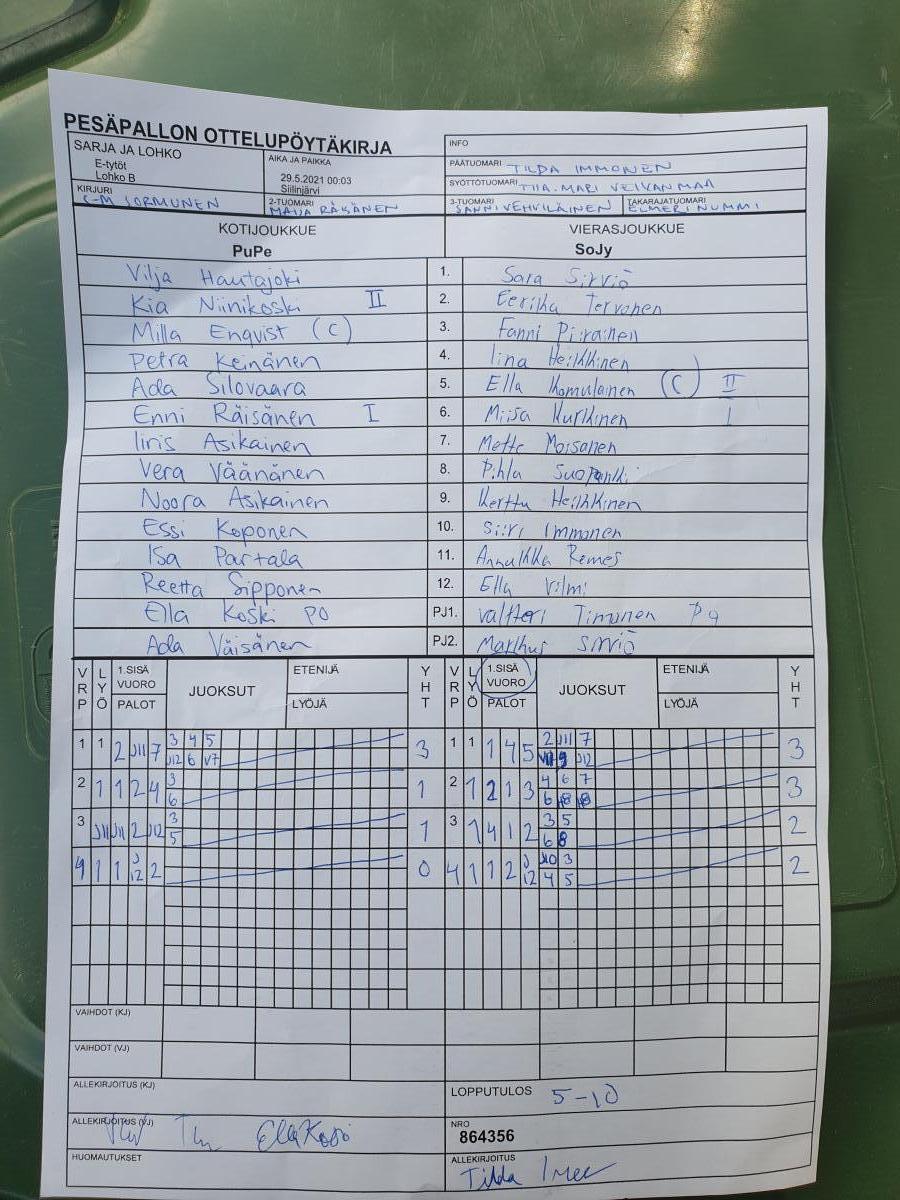 PESÄPALLON OTTELUPÖYTÄKIRJA
SARJA JA LOHKO
E-tytöt
Lohko B
AIKA JA PAIKKA
29.5.2021 00:03
Siilinjärvi
INFO
PÄÄTUOMARI TILDA IMMONEN
SYÖTTÖTUOMARI TIIA-MARI VEIVANMAA
KIRJURI
S-M SORMUNEN
2-TUOMARI
MAIJA RÄSÄNEN
3-TUOMARI
SANNI VEHVILÄINEN
TAKARAJATUOMARI
ELMERI NUMMI
KOTIJOUKKUE
PuPe
VIERASJOUKKUE
SoJy
Vilja Hautajoki 1. Sara Sirviö
Kia Niinikoski II 2. Eerika Tervonen
Milla Enqvist (C) 3. Fanni Piirainen
Petra Keinänen 4. Iina Heikkinen
Ada Silovaara 5. Ella Komulainen (C) II
Enni Räisänen I 6. Miisa Kurkinen I
Iiris Asikainen 7. Mette Moisanen
Vera Väänänen 8. Pihla Suopanki
Noora Asikainen 9. Kerttu Heikkinen
Essi Koponen 10. Siiri Immonen
Isa Partala 11. Annukka Remes
Reetta Sipponen 12. Ella Vilmi
Ella Koski PO PJ1. Valtteri Timonen
Ada Väisänen PJ2. Markus Sirviö
VRP LYÖ 1.SISÄ VUORO PALOT JUOKSUT ETENIJÄ LYÖJÄ YHT VRP LYÖ 1.SISÄ VUORO PALOT JUOKSUT ETENIJÄ LYÖJÄ YHT
1 1 2 J11 7 3 4 5 3 1 1 1 4 5 2 J11 7 3
J12 6 V7 9 J12
2 1 1 2 4 3 1 2 1 2 1 3 4 6 7 3
6 6
3 J11 J11 2 J12 3 1 3 1 4 1 2 3 5 2
5 6 8
4 1 1 J12 2 0 4 1 1 2 J12 J10 3 2
4 5
VAIHDOT (KJ)
VAIHDOT (VJ)
ALLEKIRJOITUS (KJ)
LOPPUTULOS 5-10
ALLEKIRJOITUS (VJ) Ella Koski
NRO
864356
HUOMAUTUKSET
ALLEKIRJOITUS
Tilda